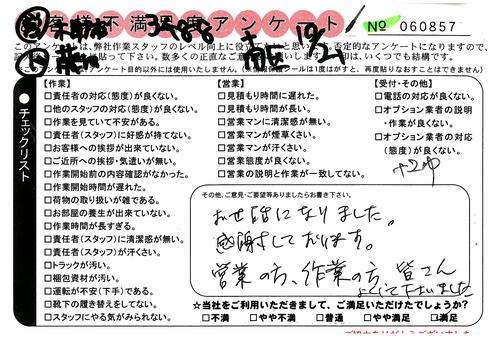 お客様不満足度アンケート
№ 060857
このアンケートは、弊社作業スタッフのレベル向上に役立て
否定的なアンケートになりますので、
いつでも結構です。
(このアンケート目的以外には使用いたしません。
【作業】
□責任者の対応(態度)が良くない。
□他のスタッフの対応(態度)が良くない。
□作業を見ていて不安がある。
□責任者(スタッフ)に好感が持てない。
□お客様への挨拶が出来ていない。
□ご近所への挨拶・気遣いが無い。
□作業開始前の内容確認がなかった。
□作業開始時間が遅れた。
□荷物の取り扱いが雑である。
□お部屋の養生が出来ていない。
□作業時間が長すぎる。
□責任者(スタッフ)に清潔感が無い。
□責任者(スタッフ)が汗くさい。
□トラックが汚い。
□梱包資材が汚い。
□運転が不安(下手)である。
□靴下の履き替えをしてない。
□スタッフにやる気がみられない。
【営業】
□見積もり時間に遅れた。
□見積もり時間が長い。
□営業マンに清潔感が無い。
□営業マンが煙草くさい。
□営業マンが汗くさい。
□営業態度が良くない。
□営業の説明と作業が一致してない。
【受付・その他】
□電話の対応が良くない。
□オプション業者の説明
・作業が良くない。
□オプション業者の対応
(態度)が良くない。
チェックリスト
その他、ご意見・ご要望等ありましたらお書き下さい。
お世話になりました。
感謝しております。
営業の方、作業の方 皆さん
よくして下さいました
☆当社をご利用いただきまして、ご満足いただけたでしょうか?
□不満 □やや不満 □普通 □やや満足 □満足
ご協力ありがとうございました